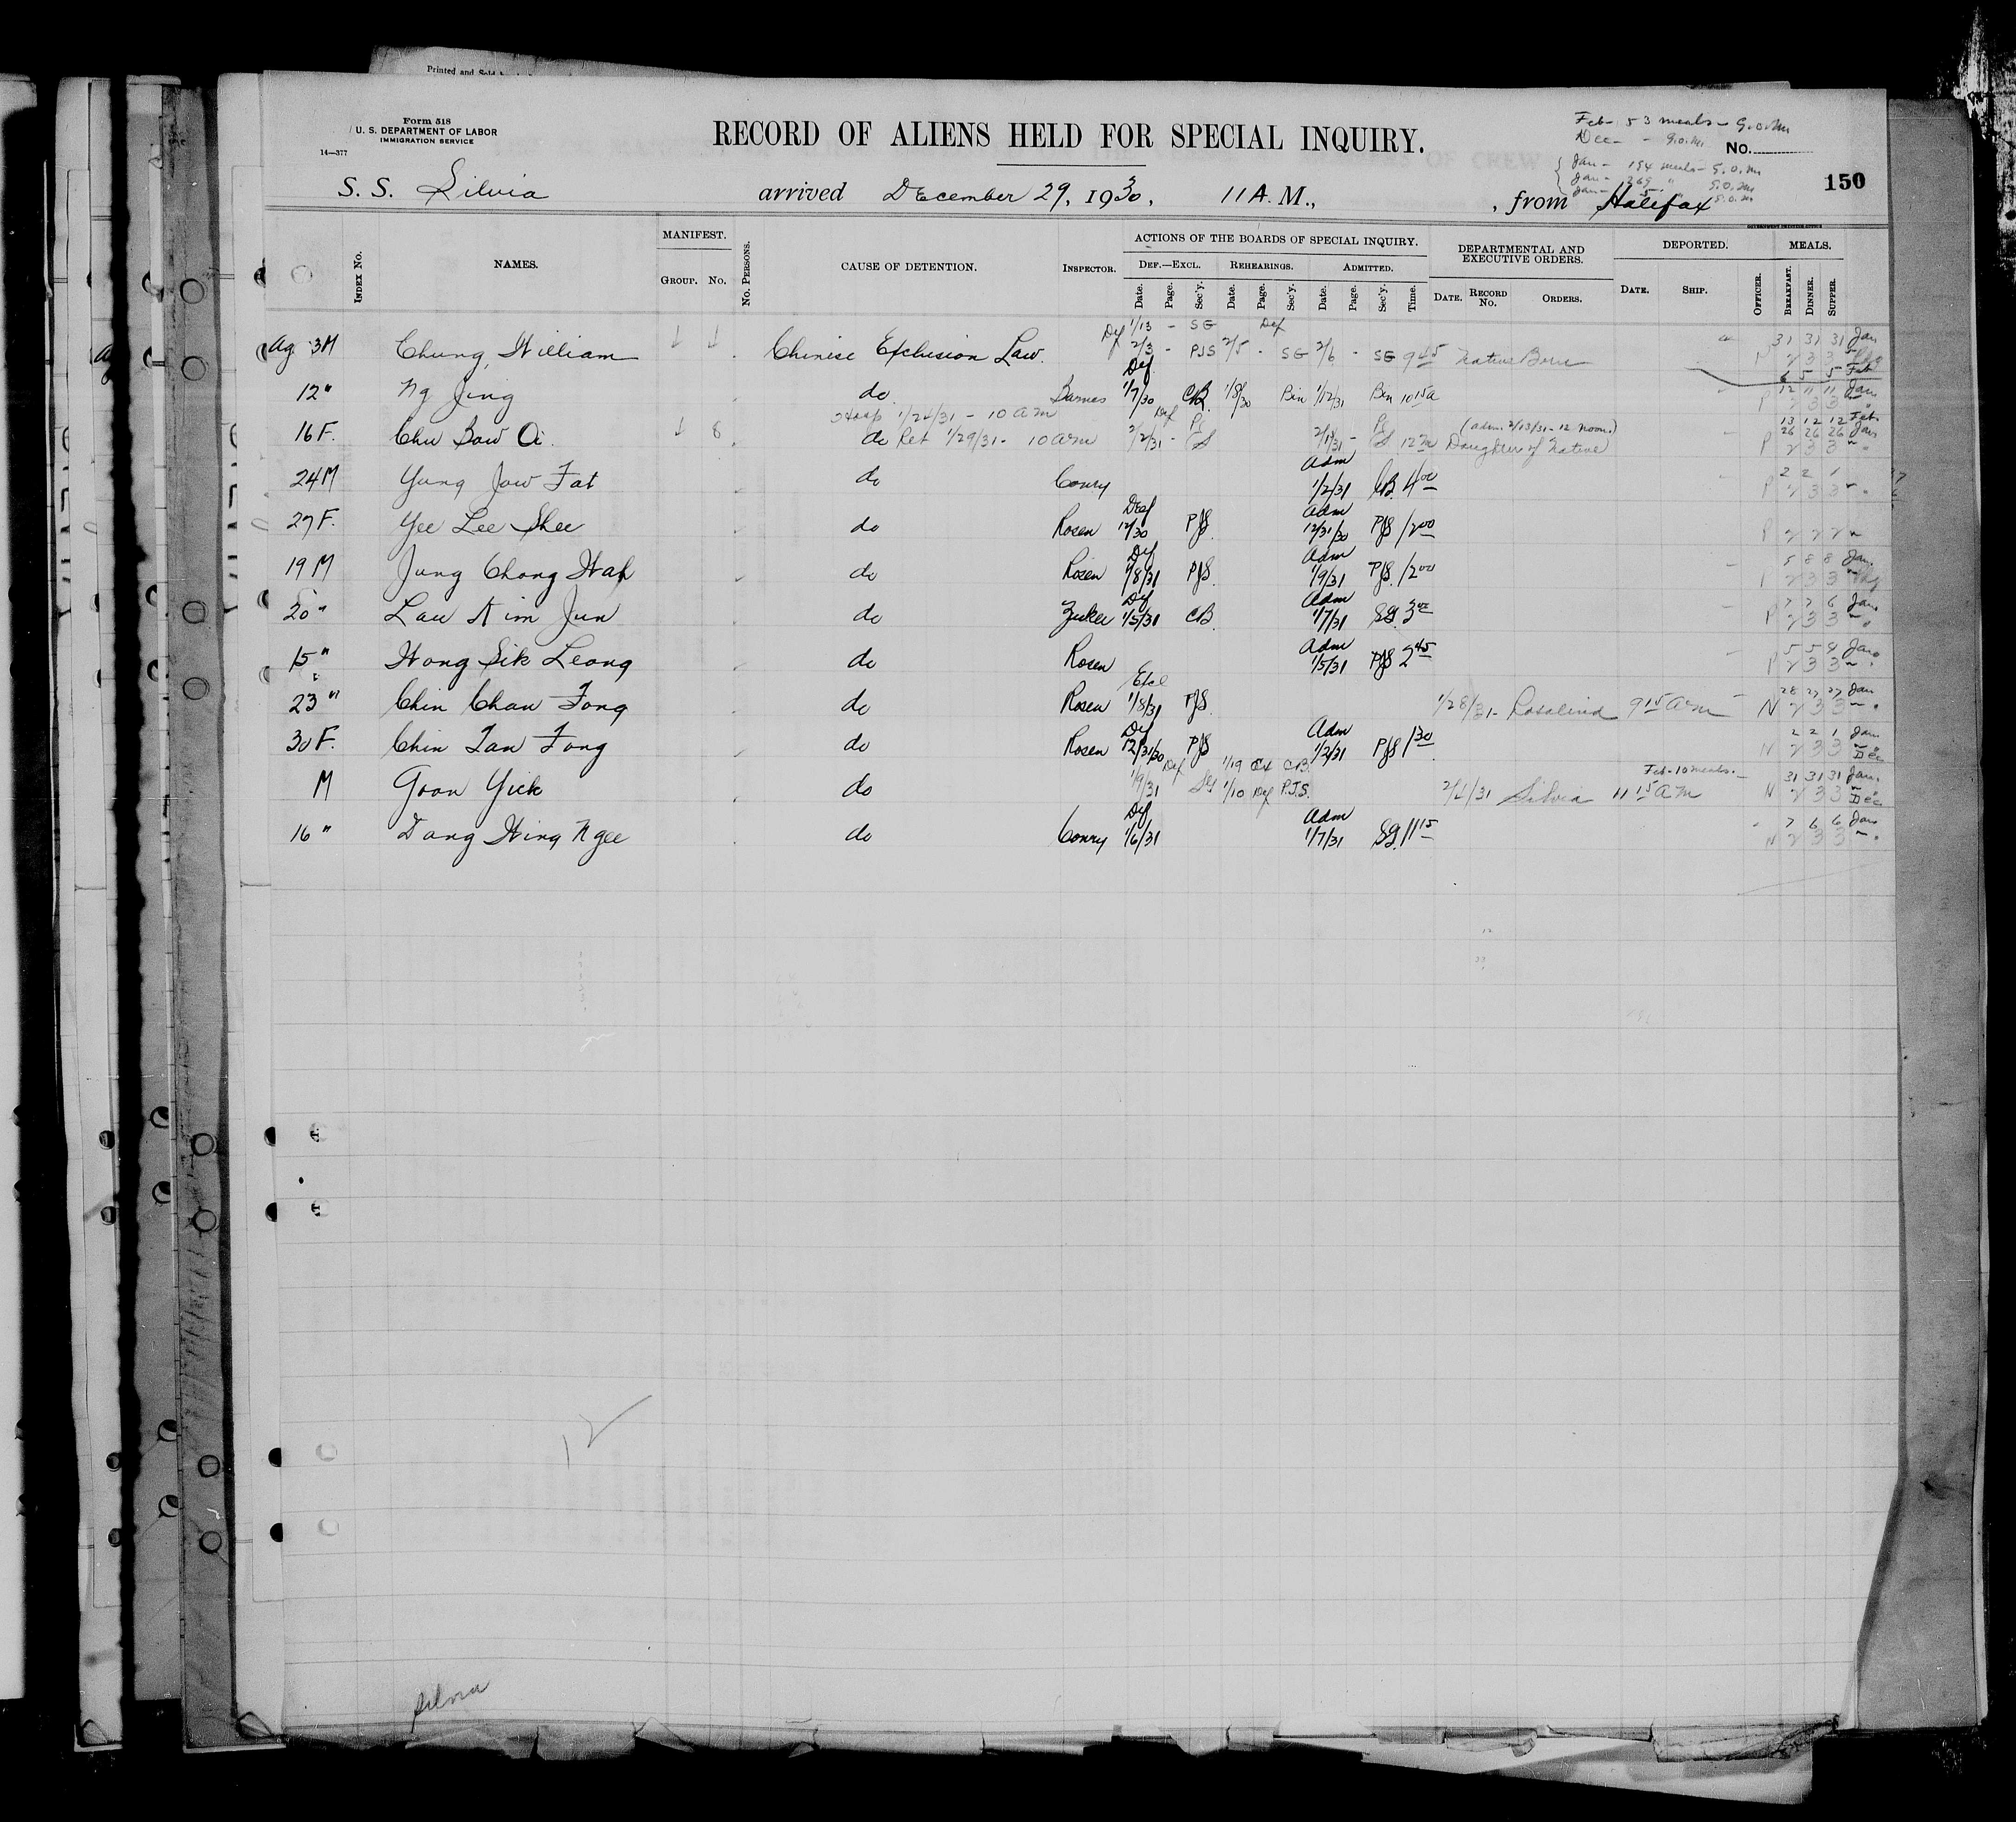 Printed and Sold
Form 518
U. S. DEPARTMENT OF LABOR
IMMIGRATION SERVICE
14—377
RECORD OF ALIENS HELD FOR SPECIAL INQUIRY.
Feb - 53 meals - G.O.M.
Dec - - G.O.M.
No.
Jan - 154 meals - S.O.M.
Jan - 269 " S.O.M.
Jan - 5 " S.O.M.
150
S. S. Silvia arrived December 29, 1930, 11 A. M., , from Halifax
INDEX No.
NAMES.
MANIFEST.
GROUP. No.
No. PERSONS.
CAUSE OF DETENTION.
INSPECTOR.
ACTIONS OF THE BOARDS OF SPECIAL INQUIRY.
DEF.—EXCL. REHEARINGS. ADMITTED.
Date. Page. Sec'y. Date. Page. Sec'y. Date. Page. Sec'y. Time.
DEPARTMENTAL AND EXECUTIVE ORDERS.
DATE. RECORD No. ORDERS.
DEPORTED.
DATE. SHIP.
OFFICER.
MEALS.
BREAKFAST. DINNER. SUPPER.
Def 1/13 - SG Def 31 31 31 Jan
Ag 3M Chung, William Chinese Exclusion Law. 2/3 - PJS 2/5 - SG 2/6 - SG 9 45 Native Born P 2 3 3
6 5 5 Feb
Def 12 11 11 Jan
12 " Ng Jing do Barnes 1/7/30 CB 1/8/30 Bin 1/12/31 Bin 10 15 a P 2 3 3 "
Hosp 1/24/31 - 10 am Def (adm. 2/13/31 - 12 noon.) 13 12 12 Feb
16 F. Chu Bow Oi 8 do Ret 1/29/31 - 10 am 2/2/31 - 2/13/31 - 12 M Daughter of Native 26 26 26 Jan
P 2 3 3 "
Adm 2 2 1
24 M Yung Jow Fat do Conry 1/2/31 CB 4 00 P 2 3 3 "
Def Adm
27 F. Yee Lee Shee do Rosen 12/30 PJS 12/31/30 PJS 12 00 P 2 2 2 "
Def Adm 5 8 8 Jan.
19 M Jung Chong Wah do Rosen 1/8/31 PJS 1/9/31 PJS 12 00 P 2 3 3 "
Def Adm 7 7 6 Jan
20 " Lau Kim Jun do Zucker 1/5/31 CB 1/7/31 SG 3 00 P 2 3 3 "
Adm 5 5 4 Jan
15 " Wong Sik Leong do Rosen 1/5/31 PJS 2 45 P 2 3 3 "
Excl 28 27 27 Jan
23 " Chin Chan Fong do Rosen 1/8/31 PJS 1/28/31 - Rosalind 9 15 am N 2 3 3 "
Def Adm 2 2 1 Jan
30 F. Chin Tan Fong do Rosen 12/31/30 PJS 1/2/31 PJS 1 30 N 2 3 3 " Dec
Def 1/19 Ex CB. Feb - 10 meals. 31 31 31 Jan.
M Goon Yick do 1/9/31 SG 1/10 Def P.J.S. 2/4/31 Silvia 11 15 AM N 2 3 3 " Dec
Def Adm 7 6 6 Jan
16 " Dang Wing Ngee do Conry 1/6/31 1/7/31 SG 11 15 N 2 3 3 "
12
Silvia